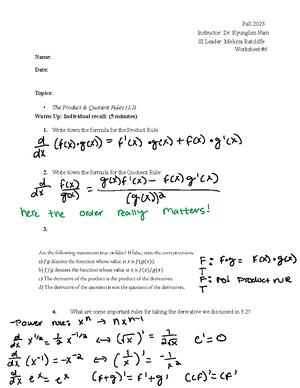 Fall 2023
Instructor: Dr. Kyunglim Nam
SI Leader: Melissa Ratcliffe
Worksheet #6
Name:
Date:
Topics:
• The Product & Quotient Rules (3.3)
Warm-Up: Individual recall: (5 minutes)
1. Write down the formula for the Product Rule:
d/dx (f(x)·g(x)) = f'(x)·g(x) + f(x)·g'(x)
2. Write down the formula for the Quotient Rule:
d/dx f(x)/g(x) = g(x)f'(x) - f(x)g'(x) / (g(x))²
here the order really matters!
3.
Are the following statements true or false? If false, state the correct version:
a) f g denotes the function whose value at x is f(g(x)).
b) f/g denotes the function whose value at x is f(x)/g(x).
c) The derivative of the product is the product of the derivatives.
d) The derivative of the quotient is not the quotient of the derivatives.
F: f·g = f(x)·g(x)
T
F: product rule
T
4. What are some important rules for taking the derivative we discussed in 3.2?
-Power rule: xⁿ → nxⁿ⁻¹
d/dx x^1/2 = 1/2 x^-1/2 ↔ (√x)' = 1/2√x e' = 0
d/dx (x⁻¹) = -x⁻² ↔ (1/x)' = -1/x²
d/dx eˣ = eˣ (f+g)' = f'+g' (cf)' = cf'